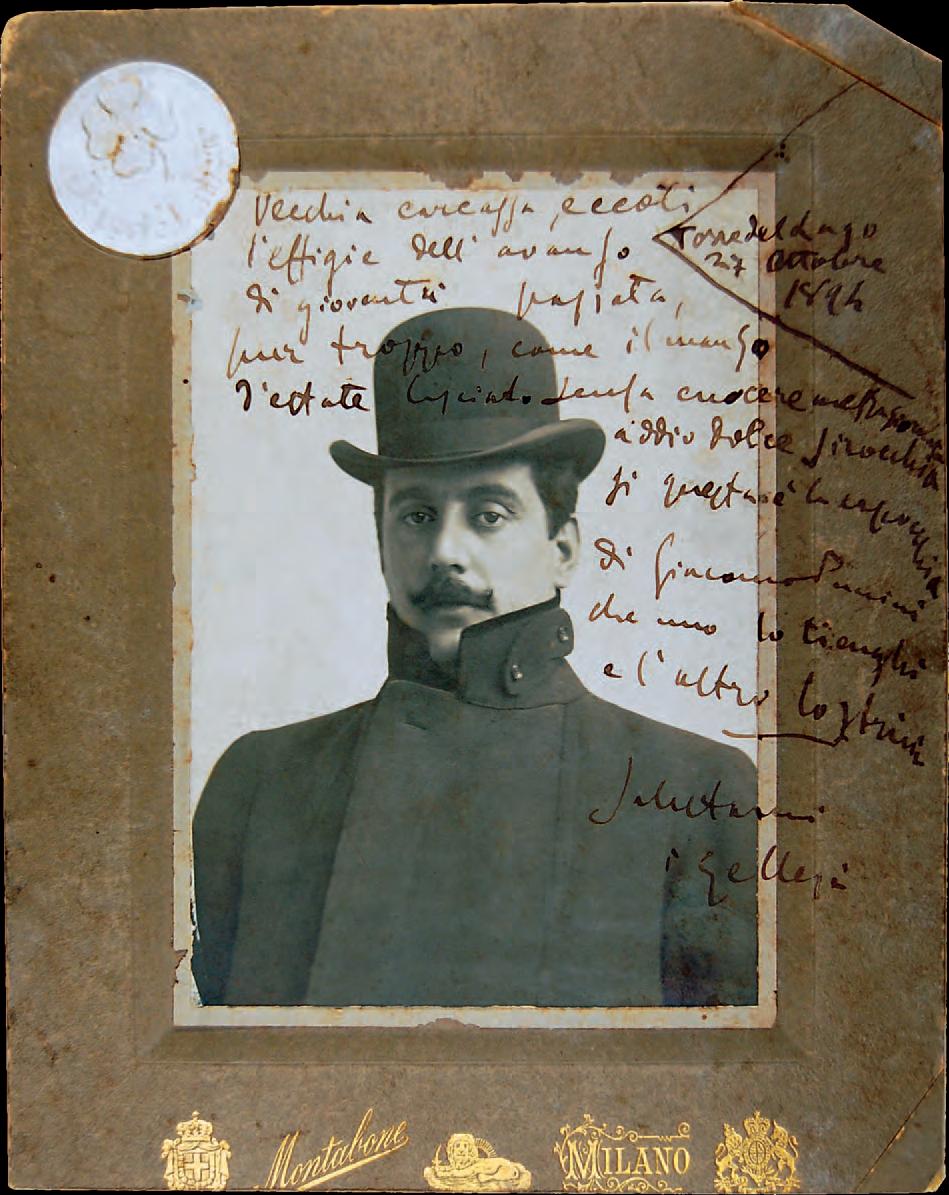 Vecchia carcassa, eccoti
l'effigie dell'avanzo
di gioventù passata,
pur troppo, come il manzo
d'estate lasciato senza cuocere
Torre del Lago
27 Ottobre
1894
addio dolce sirocchia
si questa è la
di Giacomo Puccini
che uno lo tienghi
e l'altro lo strin
Salutami
i
Montabone
MILANO